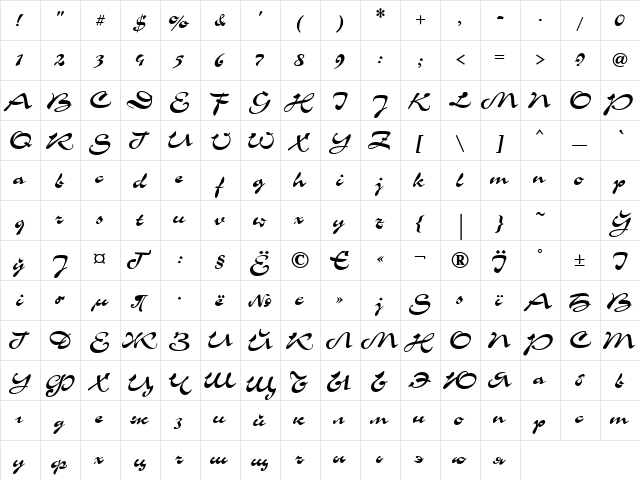 ! " # $ % & ' ( ) * + , - . / 0
1 2 3 4 5 6 7 8 9 : ; < = > ? @
A B C D E F G H I J K L M N O P
Q R S T U V W X Y Z [ \ ] ^ _ `
a b c d e f g h i j k l m n o p
q r s t u v w x y z { | } ~ Ў
ў Ј ¤ Ґ : § Ё © Є « ¬ ® Ї ° ±
і µ ¶ · ё № є » ј Ѕ ѕ ї А Б В
Г Д Е Ж З И Й К Л М Н О П Р С Т
У Ф Х Ц Ч Ш Щ Ъ Ы Ь Э Ю Я а б в
г д е ж з и й к л м н о п р с т
у ф х ц ч ш щ ъ ы ь э ю я